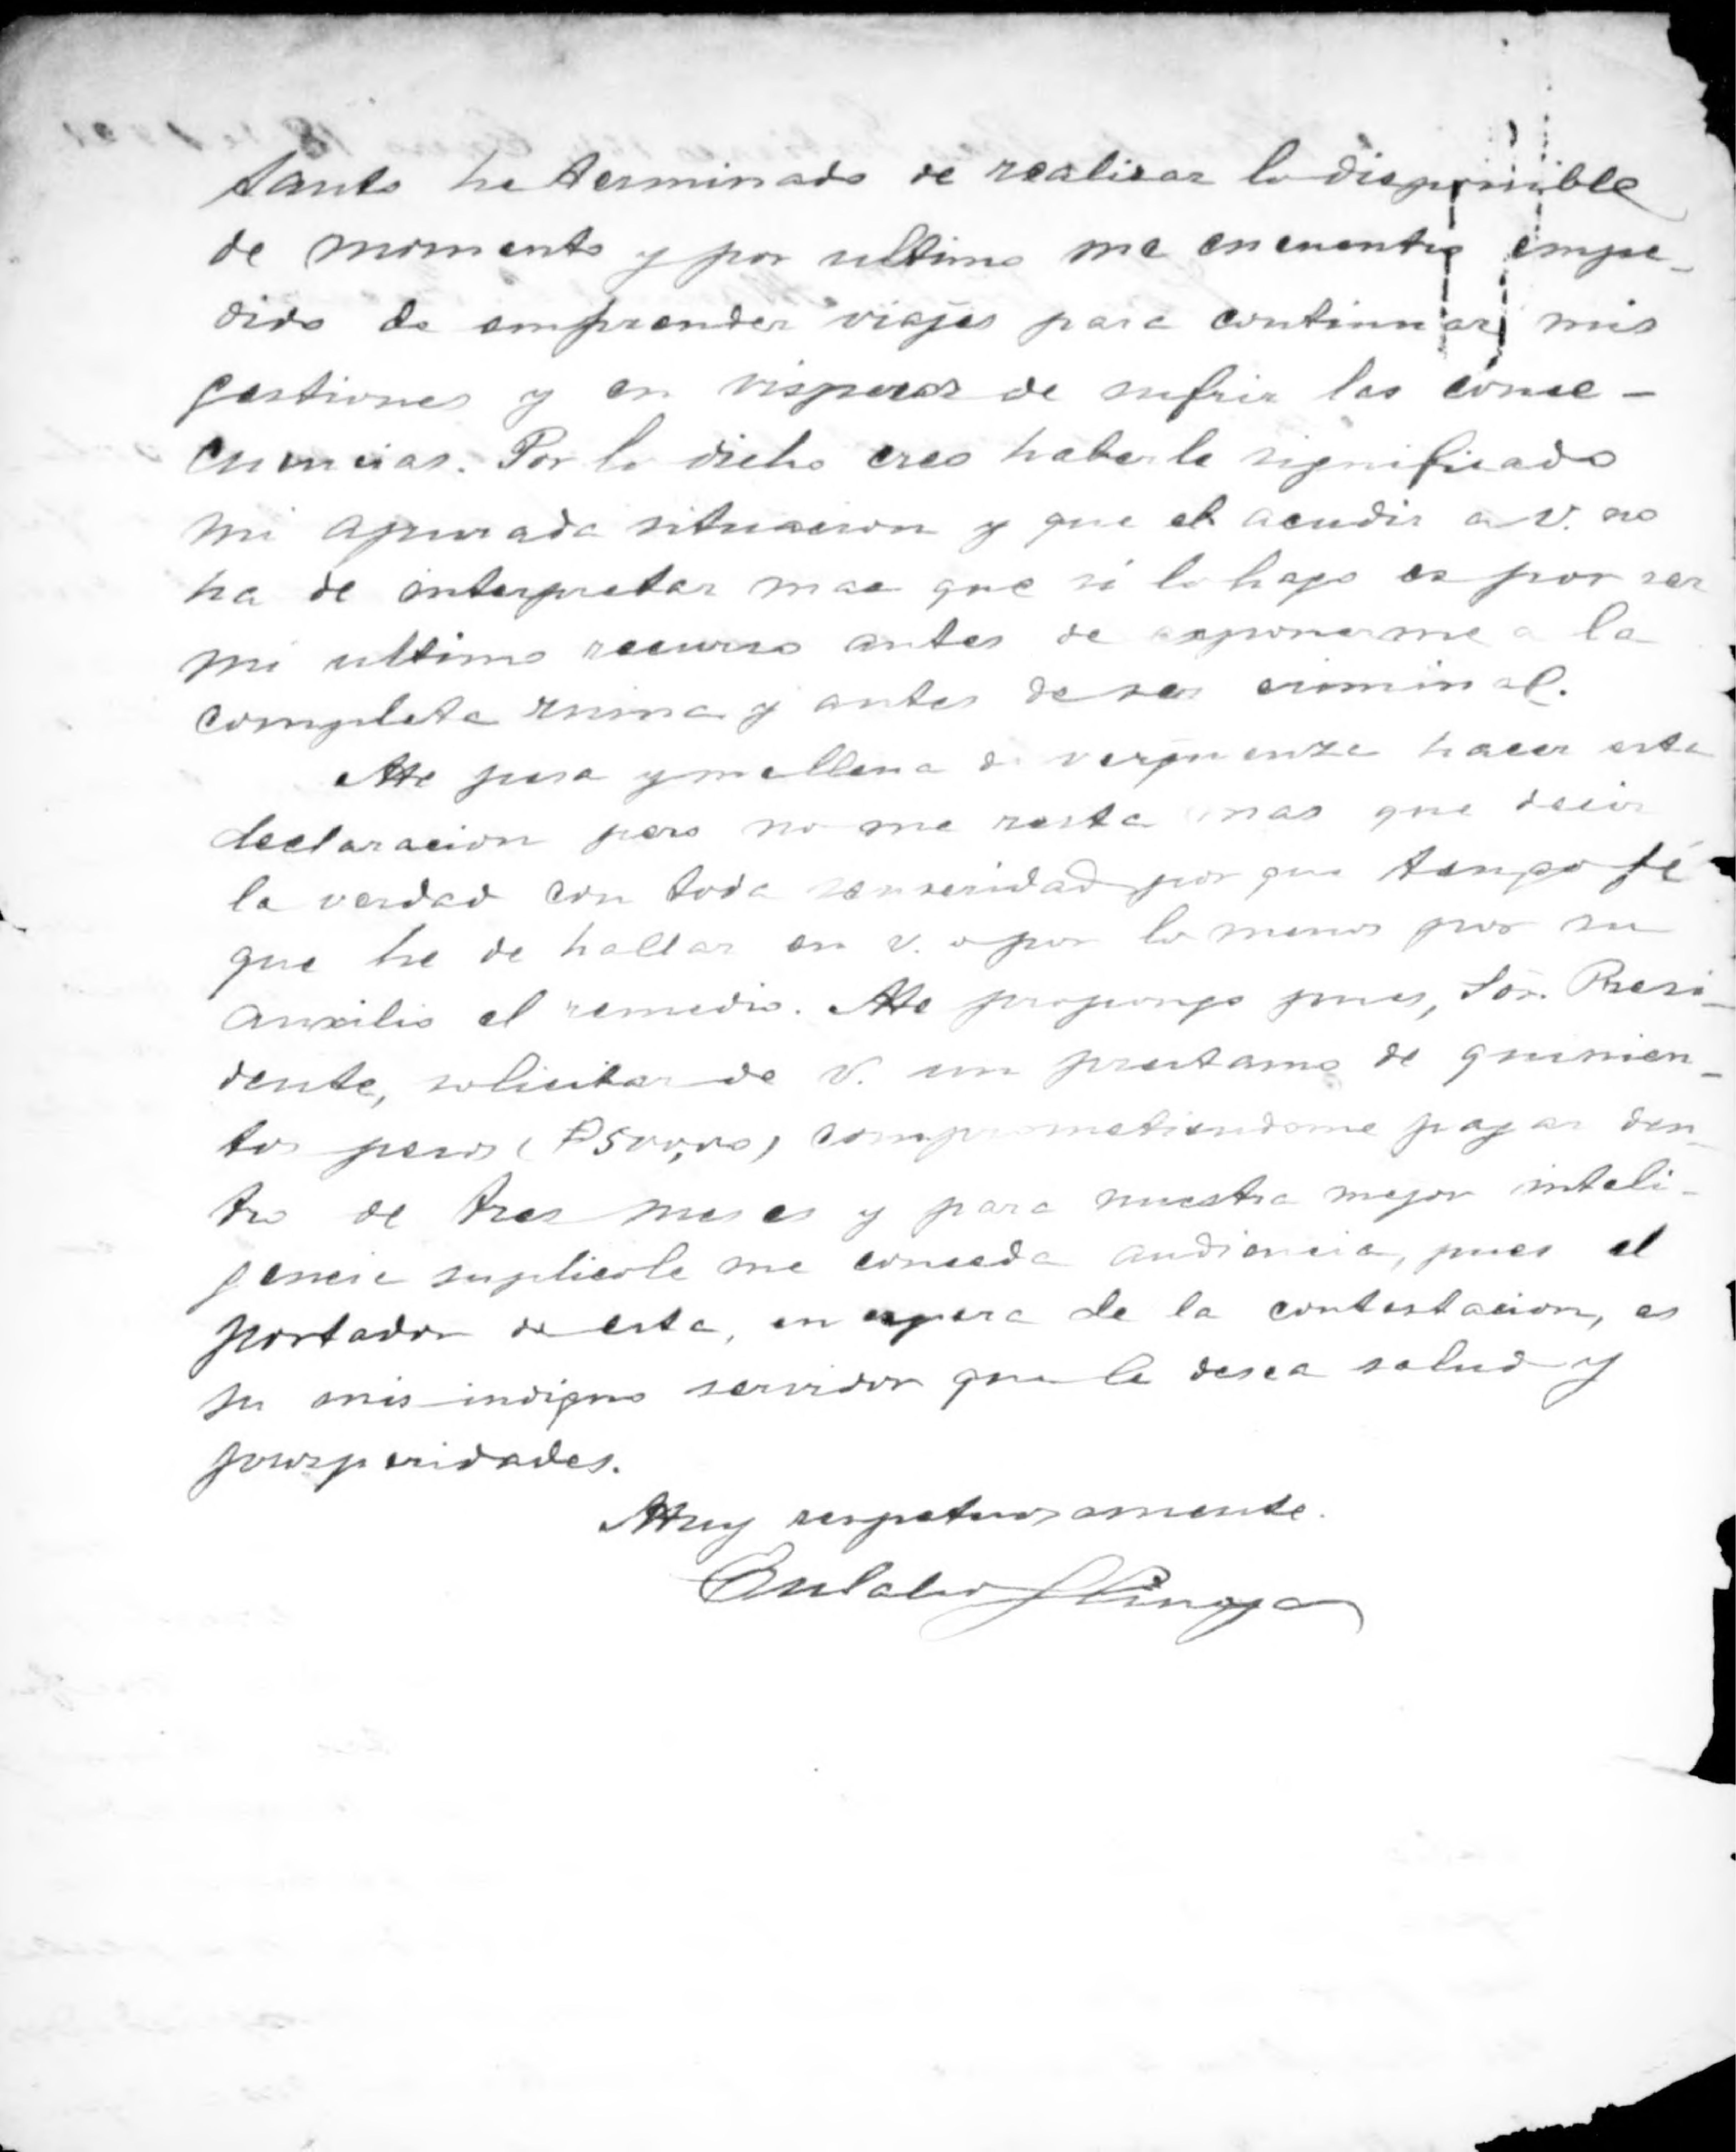 tanto he terminado de realisar lo disponible
de momento y por ultimo me encuentro empe-
dido de emprender viajes para continuar mis
gestiones y en visperas de sufrir las conse-
cuencias. Por lo dicho creo haberle significado
mi apurada situacion y que el acudir a V. no
ha de interpretar mas que si lo hago es por ser
mi ultimo recurso antes de exponerme a la
completa ruina y antes de ser criminal.
Me pesa y me llena de verguenza hacer esta
declaracion pero no me resta mas que decir
la verdad con toda senseridad por que tengo fé
que he de hallar en V. o por lo menos por su
auxilio el remedio. Me propongo pues, Sor. Presi-
dente, solicitar de V. un prestamo de quinien-
tos pesos (₱500,00) comprometiendome pagar den-
tro de tres meses y para nuestra mejor inteli-
gencia suplicole me conceda audiencia, pues el
portador de esta, en espera de la contestacion, es
su mis indigno servidor que le desea salud y
prosperidades.
Muy respetuosamente.
Eulalio